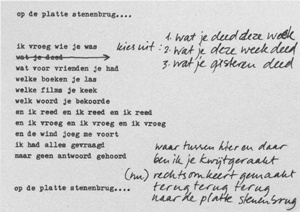 op de platte stenenbrug....
ik vroeg wie je was
wat je deed
kies uit: 1. wat je deed deze week
2. wat je deze week deed
3. wat je gisteren deed
wat voor vrienden je had
welke boeken je las
welke films je keek
welk woord je bekoorde
en ik reed en ik reed en ik reed
en ik vroeg en ik vroeg en ik vroeg
en de wind joeg me voort
ik had alles gevraagd
maar geen antwoord gehoord
waar tussen hier en daar
ben ik je kwijtgeraakt
(nu) rechtsomkeert gemaakt
terug terug terug
naar de platte stenenbrug
op de platte stenenbrug....